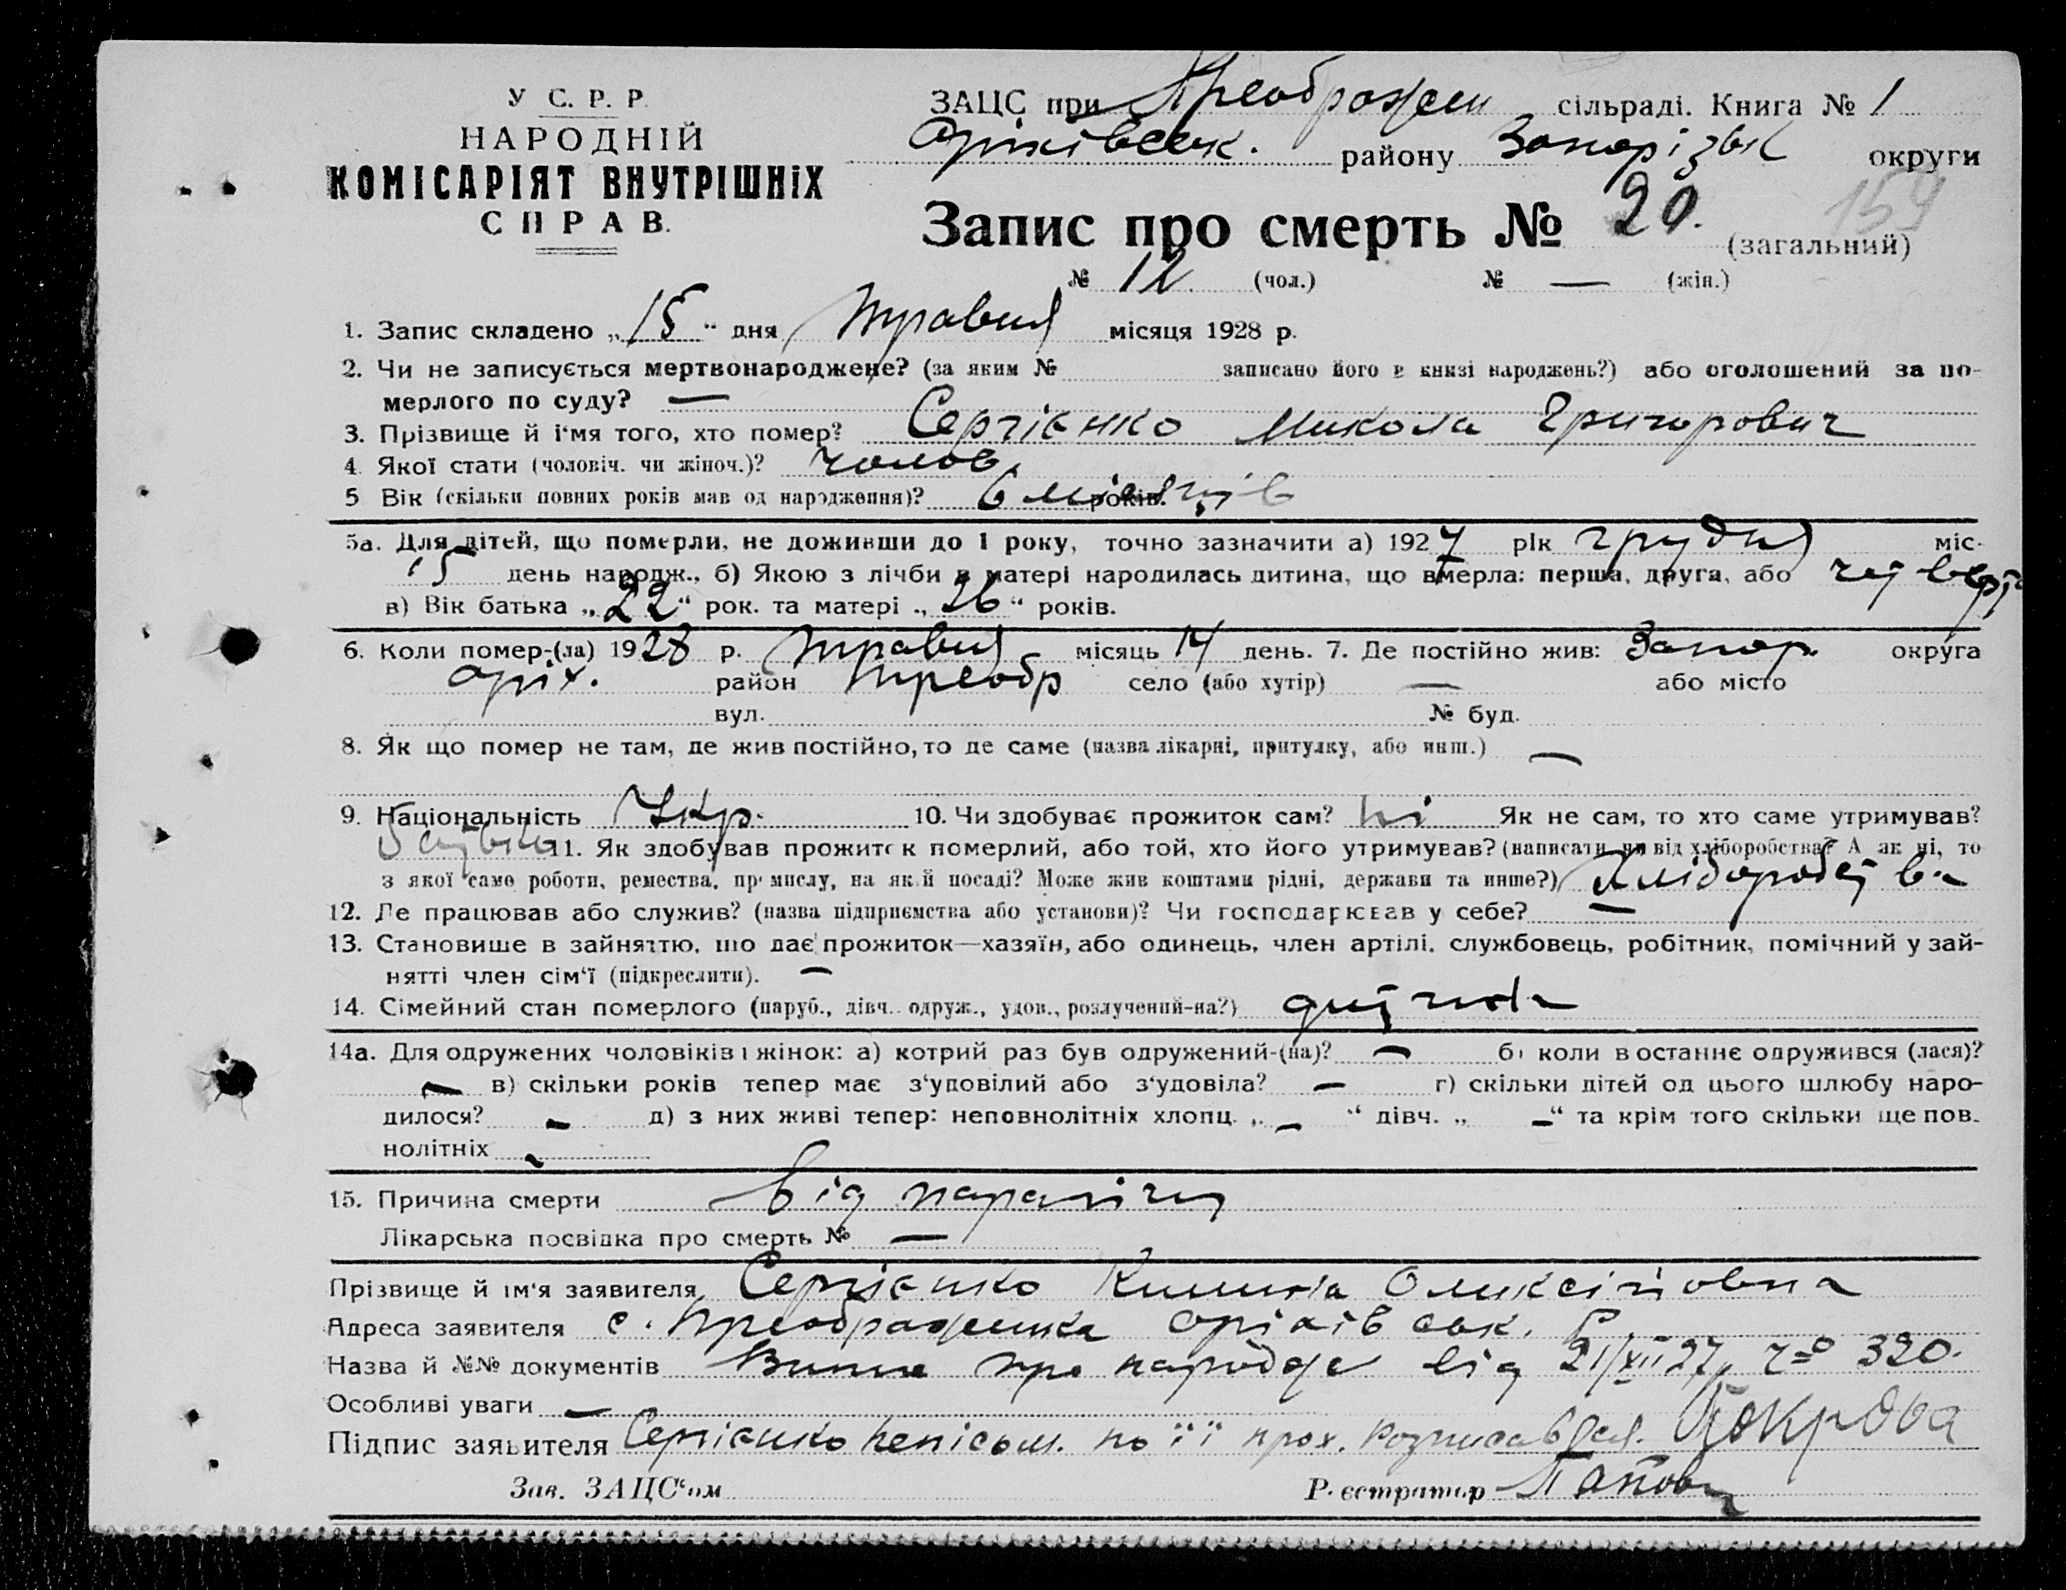 У С. Р. Р.
НАРОДНІЙ
КОМІСАРІЯТ ВНУТРІШНІХ
СПРАВ.
ЗАЦС при Преображен сільраді. Книга № 1
Оріхівськ. району Запорізьк округи
Запис про смерть № 20. (загальний)
159
№ 12 (чол.) № — (жін.)
1. Запис складено „15“ дня Травня місяця 1928 р.
2. Чи не записується мертвонароджене? (за яким № записано його в книзі народжень?) або оголошений за по-
мерлого по суду? —
3. Прізвище й і'мя того, хто помер? Сергієнко Микола Григорович
4. Якої стати (чоловіч. чи жіноч.)? чолов.
5 Вік (скільки повних років мав од народження)? 6 місяців років.
5а. Для дітей, що померли, не доживши до 1 року, точно зазначити а) 1927 рік грудня міс.
15 день народж., б) Якою з лічби в матері народилась дитина, що вмерла: перша, друга, або четверта
в) Вік батька „22“ рок. та матері „26“ років.
6. Коли помер-(ла) 1928 р. Травня місяць 14 день. 7. Де постійно жив: Запор. округа
Оріх. район Преобр село (або хутір) — або місто
вул. № буд.
8. Як що помер не там, де жив постійно, то де саме (назва лікарні, притулку, або инш.) —
9. Національність Укр. 10. Чи здобуває прожиток сам? ні Як не сам, то хто саме утримував?
батько 11. Як здобував прожиток померлий, або той, хто його утримував? (написати чи від хліборобства? А як ні, то
з якої саме роботи, ремества, промислу, на якій посаді? Може жив коштами рідні, держави та инше?) Хліборобства
12. Де працював або служив? (назва підприємства або установи)? Чи господарював у себе? —
13. Становище в зайняттю, що дає прожиток—хазяїн, або одинець, член артілі, службовець, робітник, помічний у зай-
нятті член сім'ї (підкреслити). —
14. Сімейний стан померлого (паруб., дівч. одруж., удов., розлучений-на?) дитина
14а. Для одружених чоловіків і жінок: а) котрий раз був одружений-(на)? — б) коли востаннє одружився (лася)?
— в) скільки років тепер має з'удовілий або з'удовіла? — г) скільки дітей од цього шлюбу наро-
дилося? — д) з них живі тепер: неповнолітніх хлопц. „—“ дівч. „—“ та крім того скільки ще пов-
нолітніх —
15. Причина смерти від паралічу
Лікарська посвідка про смерть № —
Прізвище й ім'я заявителя Сергієнко Килина Олексіївна
Адреса заявителя с. Преображенка Оріхівськ. Р
Назва й №№ документів Випис про народж від 21/XII 27, 320.
Особливі уваги —
Підпис заявителя Сергієнко неписьм. по її прох. Розписавсь.
Зав. ЗАЦС'ом Реєстратор